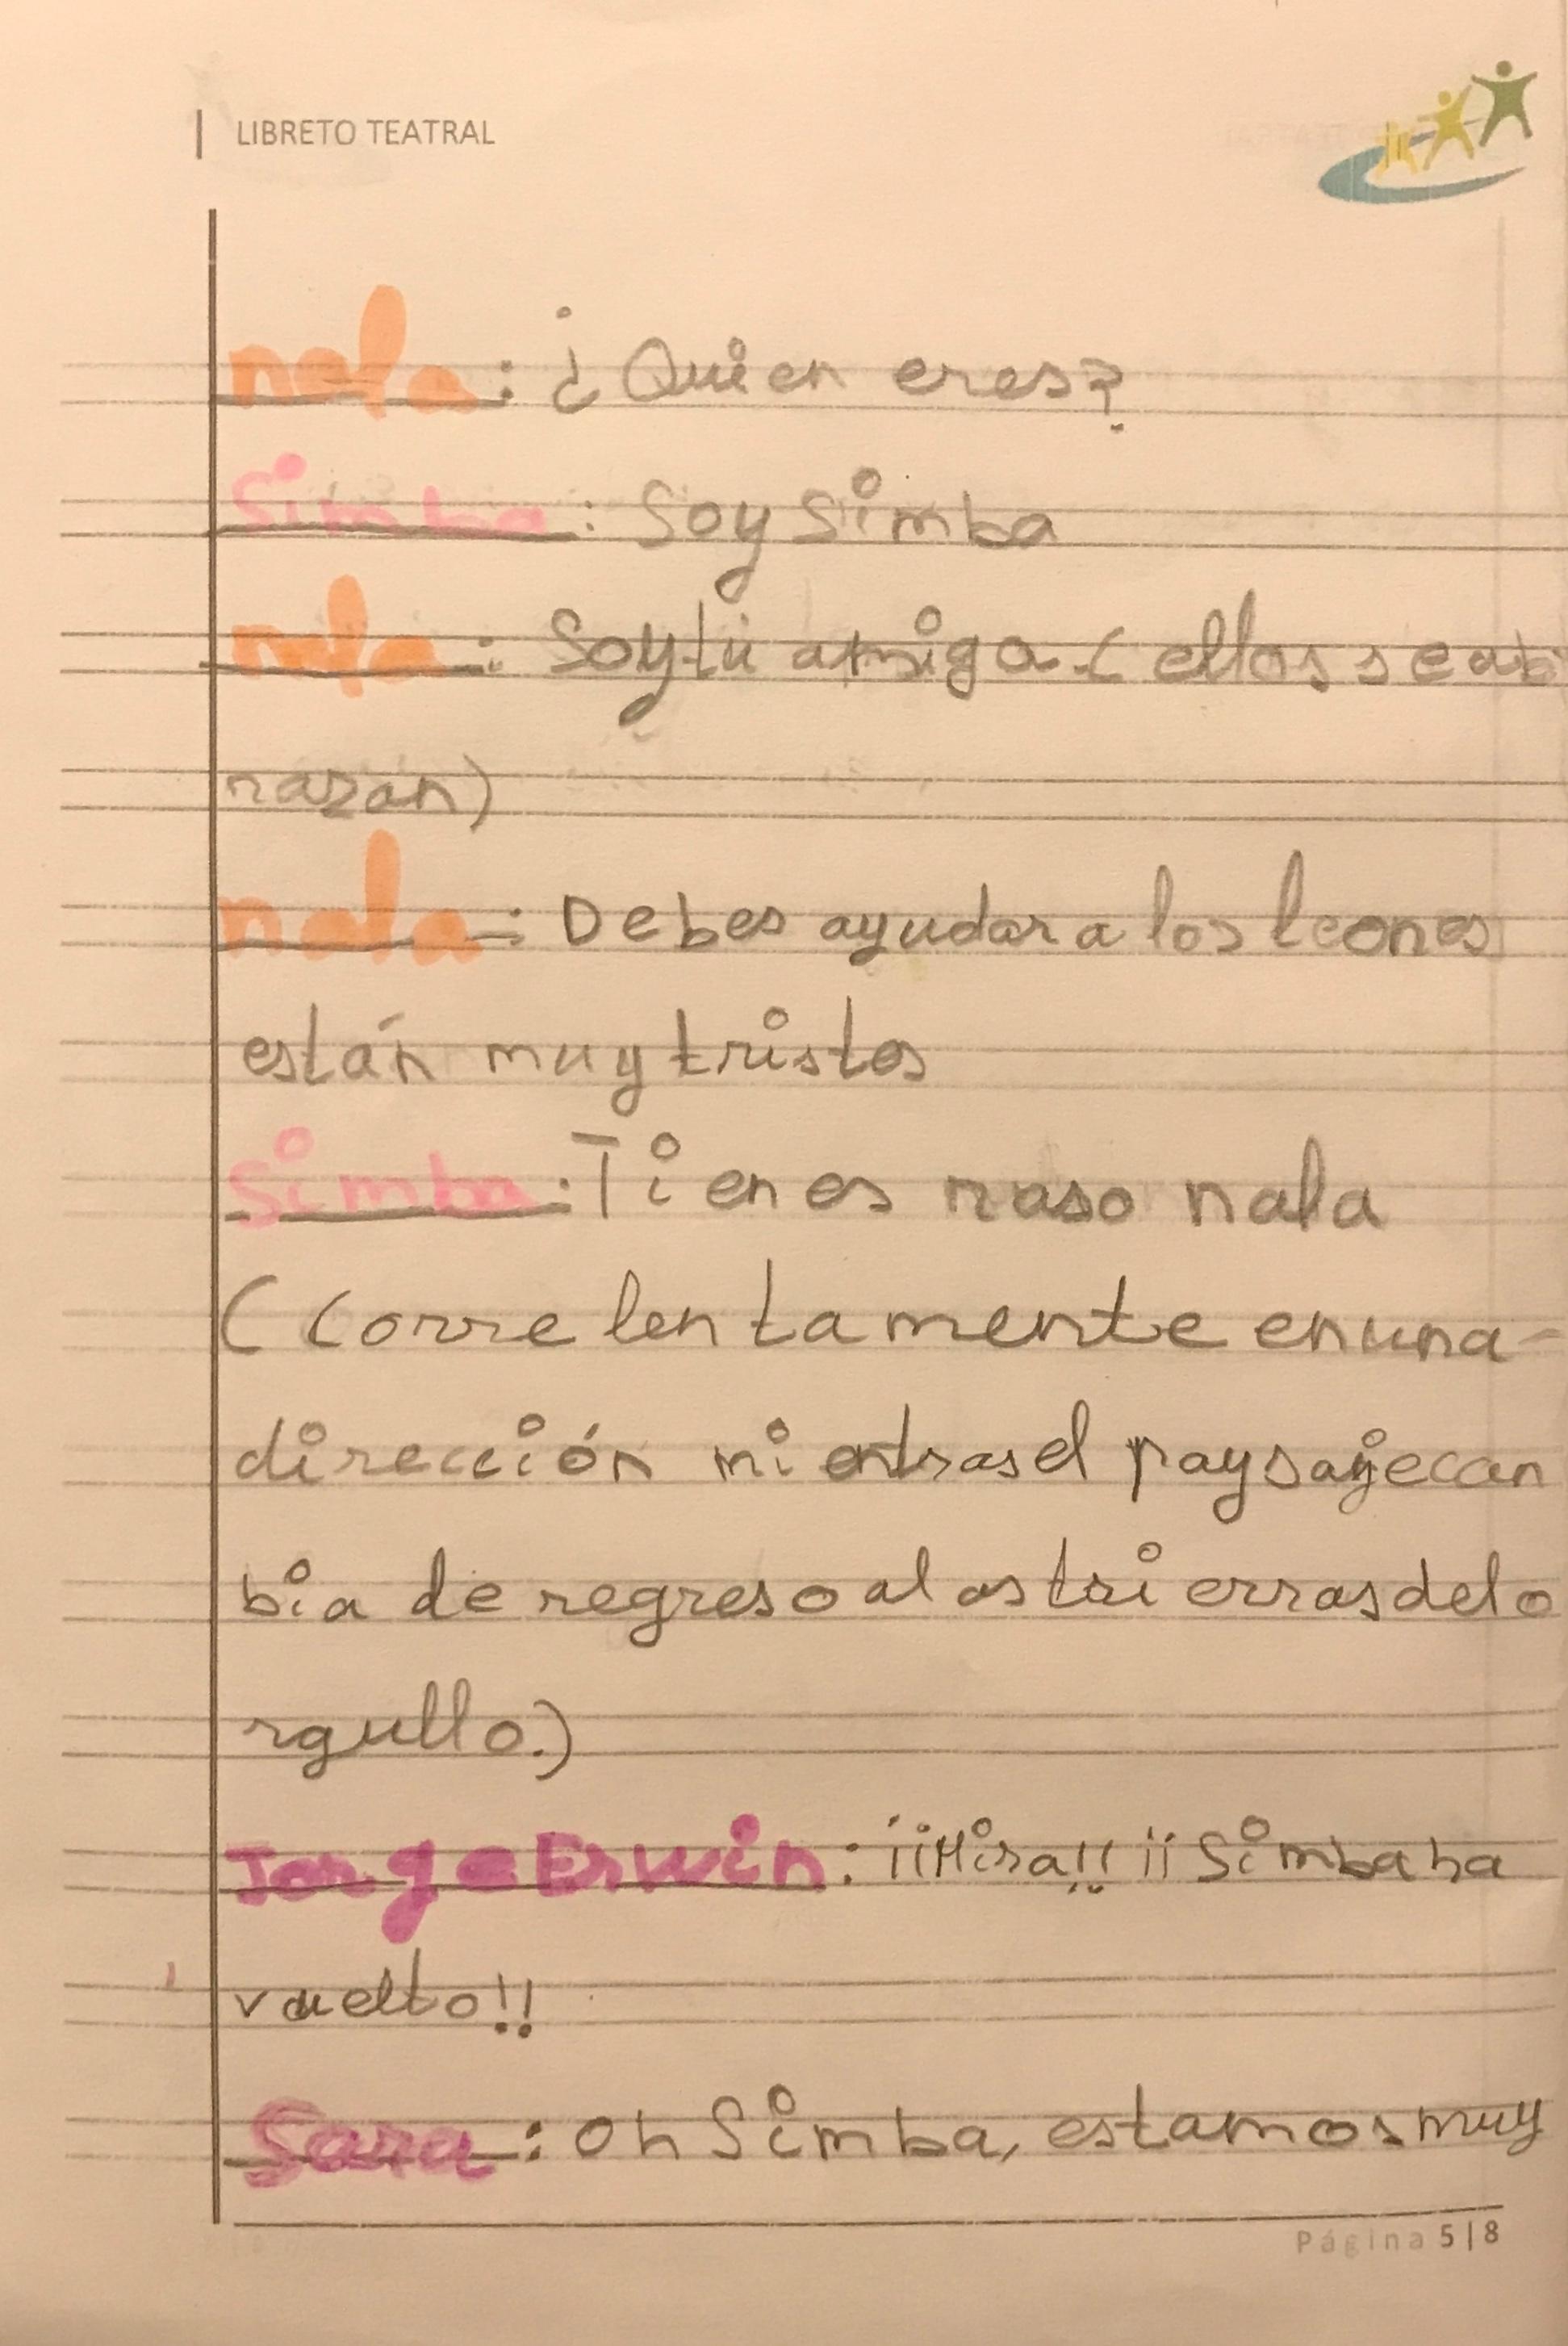 LIBRETO TEATRAL
nala: ¿Quien eres?
Simba: Soy Simba
nala: Soy tu amiga. (ellos se ab
razan)
nala: Debes ayudar a los leones
están muy tristes
Simba: Tienes raso nala
(Corre lentamente en una-
dirección mientras el paysaje can
bia de regreso a las trierras del o
rgullo.)
Jorge Erwin: ¡¡Mira!! ¡¡Simba ha
vuelto!!
Sara: oh Simba, estamos muy
Página 5|8